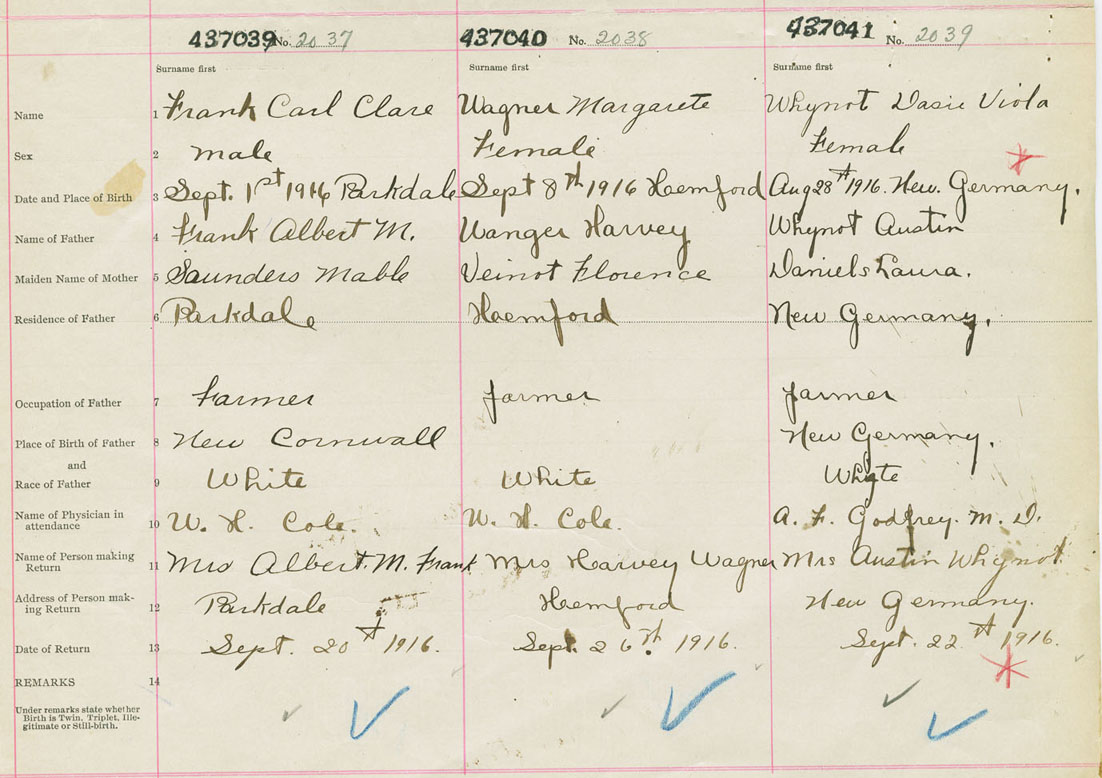 437039 No. 2037 437040 No. 2038 437041 No. 2039
Surname first Surname first Surname first
Name 1 Frank Carl Clare Wagner Margarete Whynot Dasie Viola
Sex 2 male Female Female
Date and Place of Birth 3 Sept. 1st 1916 Parkdale Sept 8th 1916 Hemford Aug 28th 1916. New. Germany.
Name of Father 4 Frank Albert M. Wanger Harvey Whynot Austin
Maiden Name of Mother 5 Saunders Mable Veinot Florence Daniels Laura.
Residence of Father 6 Parkdale Hemford New Germany.
Occupation of Father 7 Farmer farmer farmer
Place of Birth of Father 8 New Cornwall New Germany.
and
Race of Father 9 White White Whyte
Name of Physician in
attendance 10 W. H. Cole. W. H. Cole. A. F. Godfrey. M. D.
Name of Person making
Return 11 Mrs Albert. M. Frank Mrs Harvey Wagner Mrs Austin Whynot.
Address of Person mak-
ing Return 12 Parkdale Hemford New Germany.
Date of Return 13 Sept. 20th 1916. Sept. 26th. 1916. Sept. 22th 1916.
REMARKS 14
Under remarks state whether
Birth is Twin. Triplet. Ille-
gitimate or Still-birth.